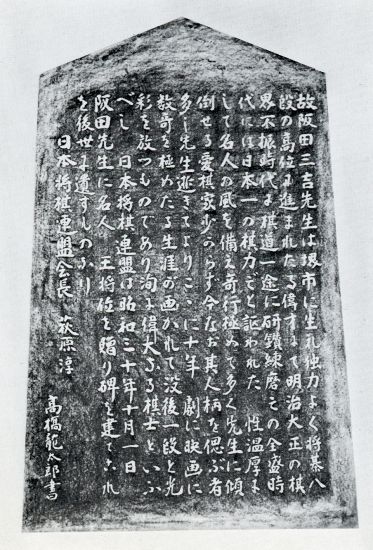 故阪田三吉先生は堺市に生れ独力よく将棋八
段の高位に進まれたる偉才にて明治大正の棋
界不振時代よ棋道一途に研鑽練磨その全盛時
代には日本一の棋力なりと謳われた 性温厚に
して名人の風を備え奇行極めて多く先生に傾
倒せる愛棋家少からず今なお其人柄を偲ぶ者
多し先生逝きてよりここに十年 劇に映画に
数奇を極めたる生涯の画かれて没後一段と光
彩を放つものであり洵に偉大なる棋士といふ
べし 日本将棋連盟は昭和三十年十月一日
阪田先生に名人 王将位を贈り碑を建てこれ
を後世に遺すものなり
日本将棋連盟会長 萩原淳
高橋龍太郎書